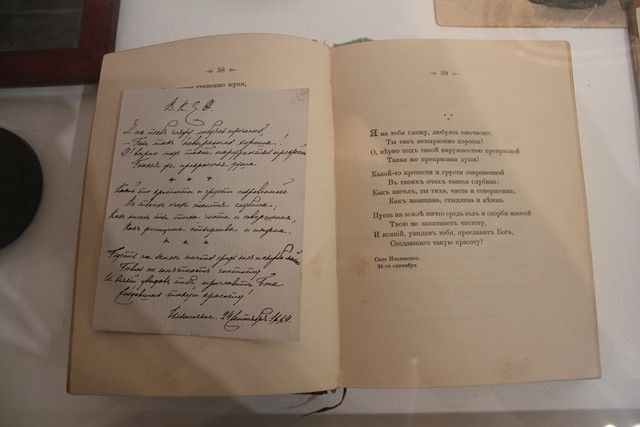 58
муки,
Я на тебя гляжу, любуясь ежечасно:
Ты такъ невыразимо хороша!
О, вѣрно подъ такой наружностью прекрасной
Такая же прекрасная душа!
* * *
Какой то кротости и грусти сокровенной
Въ твоихъ очахъ таится глубина;
Какъ ангелъ ты тиха, чиста и совершенна,
Какъ женщина стыдлива и нѣжна.
* * *
Пусть на землѣ ничто средь золъ и скорби многой
Твою не запятнаетъ чистоту
И всякій увидавъ тебя, прославитъ Бога
Создавшаго такую красоту!
Ильинское, 24 Сентября 1884.
59
Я на тебя гляжу, любуясь ежечасно:
Ты такъ невыразимо хороша!
О, вѣрно подъ такой наружностью прекрасной
Такая же прекрасная душа!
Какой-то кротости и грусти сокровенной
Въ твоихъ очахъ таится глубина;
Какъ ангелъ, ты тиха, чиста и совершенна;
Какъ женщина, стыдлива и нѣжна.
Пусть на землѣ ничто средь золъ и скорби многой
Твою не запятнаетъ чистоту,
И всякій, увидавъ тебя, прославитъ Бога,
Создавшаго такую красоту!
Село Ильинское.
24-го сентября.